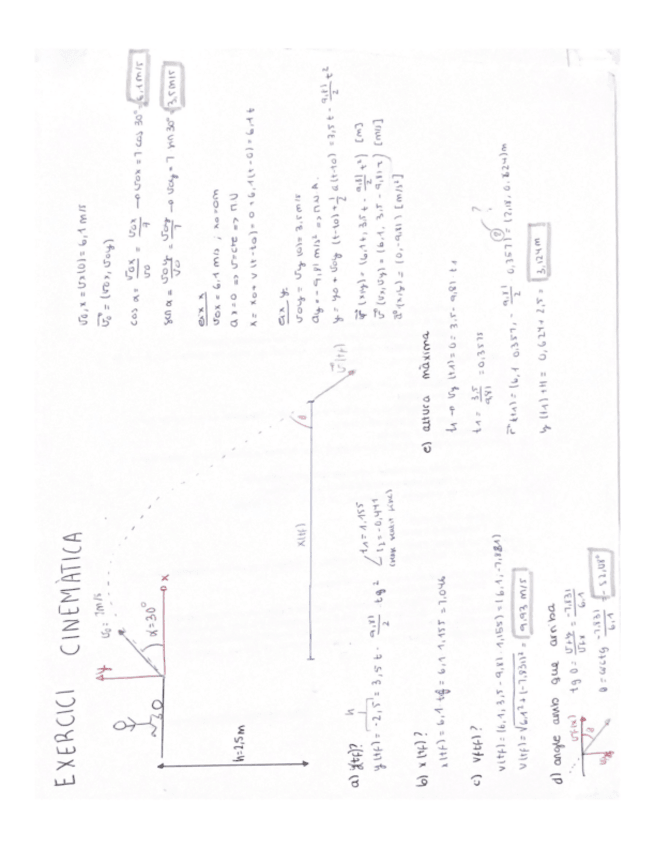 EXERCICI CINEMÀTICA
y
v₀ = 7m/s
α=30°
x
h=2,5m
x(tf)
θ
v⃗(tf)
v₀,x = vx(0) = 6,1 m/s
v⃗₀ = (v₀x, v₀y)
cos α = v₀x/v₀ = v₀x/7 → v₀x = 7 cos 30° = 6,1 m/s
sin α = v₀y/v₀ = v₀y/7 → v₀y = 7 sin 30° = 3,5 m/s
eix x
v₀x = 6,1 m/s ; x₀=0m
ax=0 => v=cte => MU
x = x₀ + v(t-t₀) = 0 + 6,1(t-0) = 6,1t
eix y:
v₀y = vy(0) = 3,5 m/s
ay = -9,81 m/s² => MUA.
y = y₀ + v₀y (t-t₀) + 1/2 a(t-t₀) = 3,5t - 9,81/2 t²
r⃗(x,y) = (6,1t, 3,5t - 9,81/2 t²) [m]
v⃗(vx,vy) = (6,1, 3,5 - 9,81t) [m/s]
a⃗(x,y) = (0,-9,81) [m/s²]
a) y(tf)?
h
y(tf) = -2,5 = 3,5 t - 9,81/2 tf²
t1 = 1,155
t2 = -0,441
b) x(tf)?
x(tf) = 6,1 tf = 6,1 · 1,155 = 7,046
c) v(tf)?
v(tf) = (6,1, 3,5 - 9,81 · 1,155) = (6,1, -7,831)
v(tf) = √6,1² + (-7,831)² = 9,93 m/s
d) angle amb que arriba
vf(x)
θ
vfy
tg θ = vfy/vfx = -7,831/6,1
θ = arctg -7,831/6,1 = -52,08°
e) altura màxima
t1 → vy(t1) = 0 = 3,5 - 9,81 t1
t1 = 3,5/9,81 = 0,357s
r⃗(t1) = (6,1 · 0,357, - 9,81/2 0,357²) = (2,18, 0,624)m
?
y(t1) + h = 0,624 + 2,5 = 3,124m